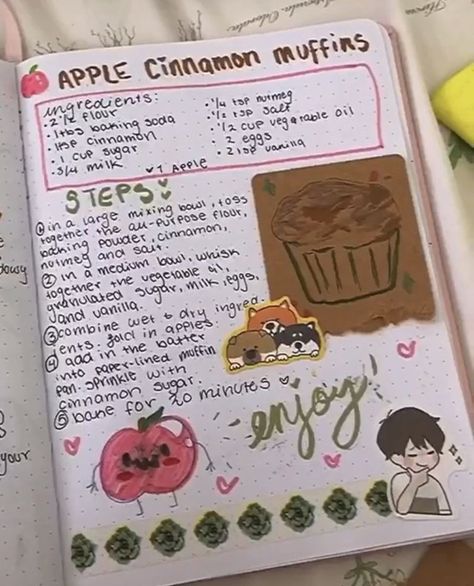 APPLE Cinnamon muffins
ingredients:
• 2 1/2 flour
• 1 tbs baking soda
• 1 tsp cinnamon
• 1 cup sugar
• 3/4 milk
• 1/4 tsp nutmeg
• 1/2 tsp salt
• 1/2 cup vegetable oil
• 2 eggs
• 2 tsp vanilla
♥ 1 Apple
STEPS
① in a large mixing bowl, toss
together the all-purpose flour,
baking powder, cinnamon,
nutmeg and salt
② in a medium bowl, whisk
together the vegetable oil,
granulated sugar, milk, eggs,
and vanilla.
③ combine wet & dry ingred-
ients. fold in apples
④ add in the batter
into paper-lined muffin
pan. sprinkle with
cinnamon sugar.
⑤ bake for 20 minutes
enjoy!
your